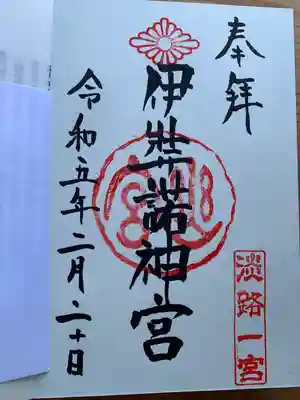 奉拝
淡路一宮
伊弉諾神宮
令和五年二月二十日